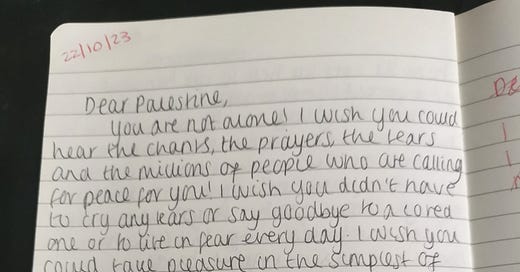 22/10/23
Dear Palestine,
You are not alone! I wish you could
hear the chants, the prayers, the tears
and the millions of people who are calling
for peace for you! I wish you didn't have
to cry any tears or say goodbye to a loved
one or to live in fear every day. I wish you
could take pleasure in the simplest of